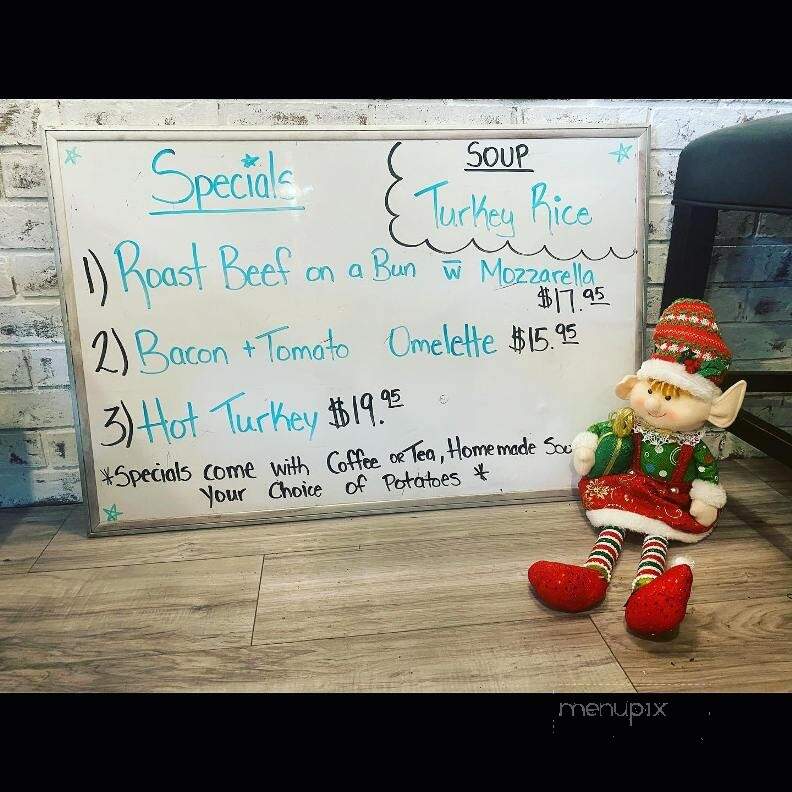 Specials
SOUP
Turkey Rice
1) Roast Beef on a Bun w̅ Mozzarella
$17.95
2) Bacon + Tomato Omelette $15.95
3) Hot Turkey $19.95
*Specials come with Coffee or Tea, Homemade Sou
Your Choice of Potatoes *
menupix